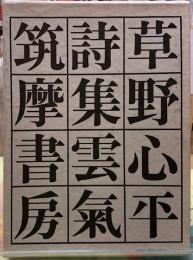 草野心平
詩集雲氣
筑摩書房